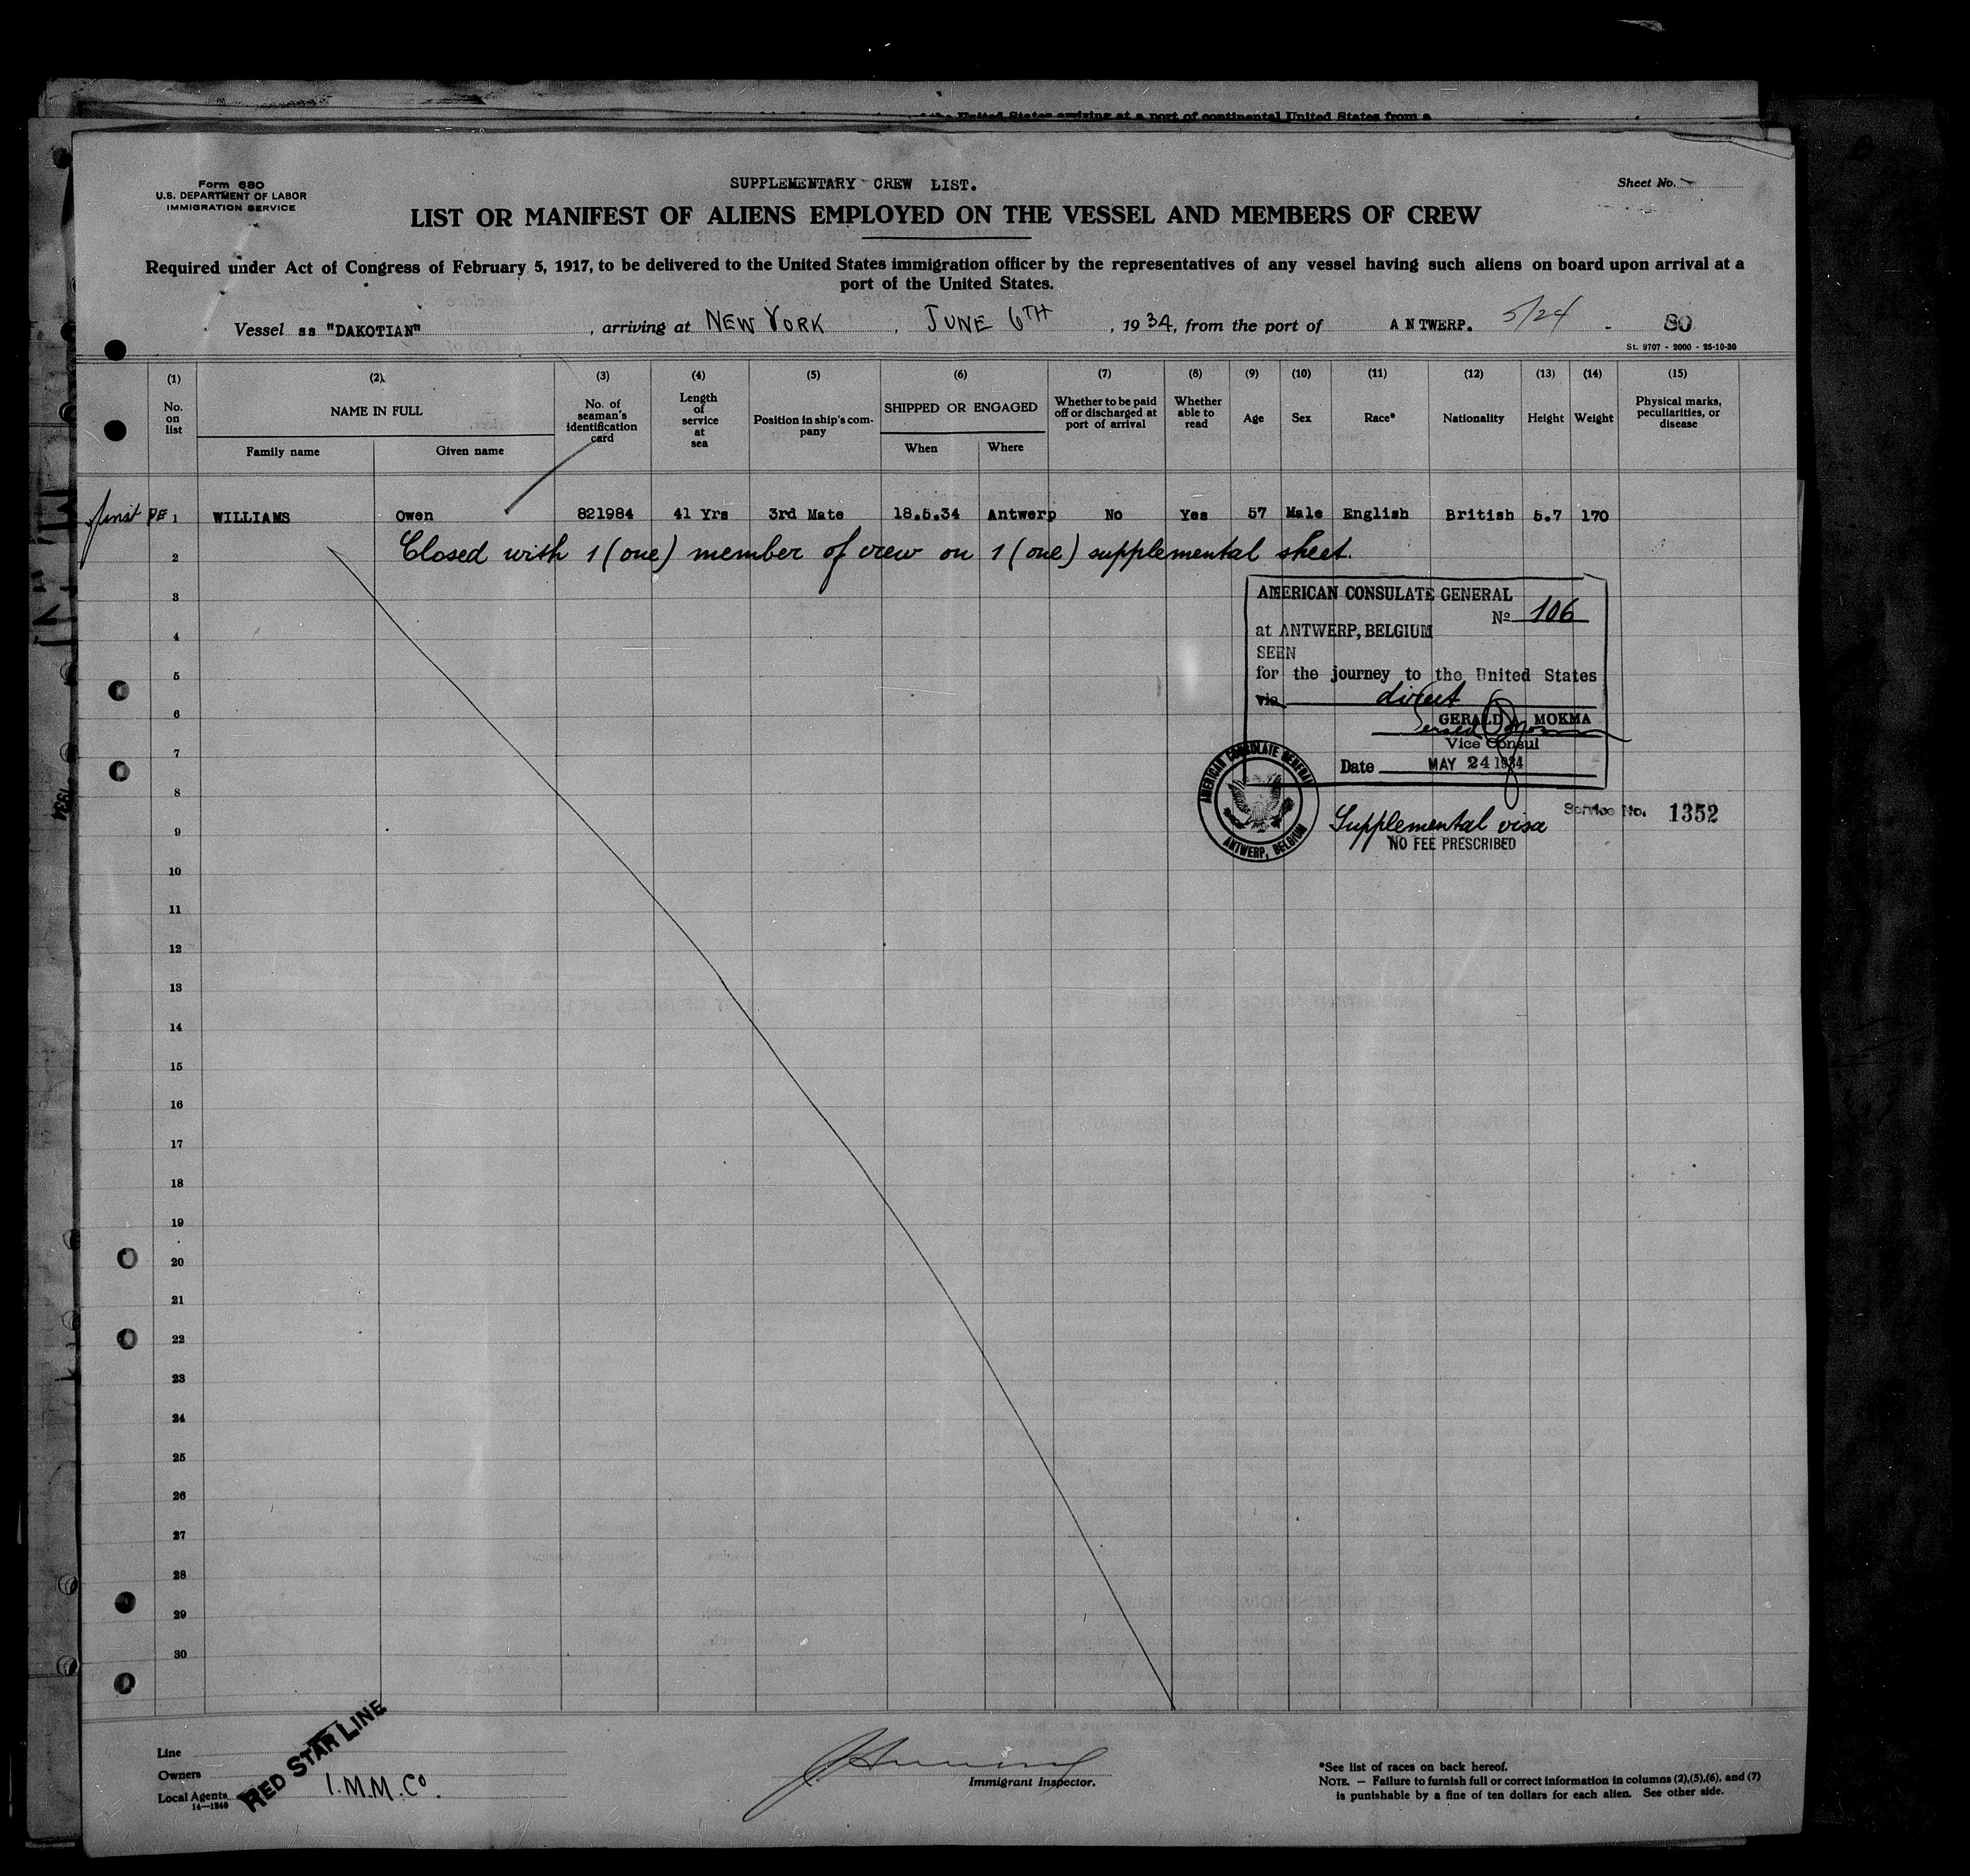 the United States arriving at a port of continental United States from a
Form 680
U.S. DEPARTMENT OF LABOR
IMMIGRATION SERVICE
SUPPLEMENTARY CREW LIST.
Sheet No.
LIST OR MANIFEST OF ALIENS EMPLOYED ON THE VESSEL AND MEMBERS OF CREW
Required under Act of Congress of February 5, 1917, to be delivered to the United States immigration officer by the representatives of any vessel having such aliens on board upon arrival at a
port of the United States.
Vessel ss "DAKOTIAN", arriving at NEW YORK, JUNE 6TH, 1934, from the port of ANTWERP. 5/24 - 80
St. 9707 - 2000 - 25-10-30
(1) (2) (3) (4) (5) (6) (7) (8) (9) (10) (11) (12) (13) (14) (15)
No. on list NAME IN FULL Family name Given name No. of seaman's identification card Length of service at sea Position in ship's company SHIPPED OR ENGAGED When Where Whether to be paid off or discharged at port of arrival Whether able to read Age Sex Race* Nationality Height Weight Physical marks, peculiarities, or disease
1 WILLIAMS Owen 821984 41 Yrs 3rd Mate 18.5.34 Antwerp No Yes 57 Male English British 5.7 170
2 Closed with 1 (one) member of crew on 1 (one) supplemental sheet.
3
4
5
6
7
8
9
10
11
12
13
14
15
16
17
18
19
20
21
22
23
24
25
26
27
28
29
30
AMERICAN CONSULATE GENERAL
No 106
at ANTWERP, BELGIUM
SEEN
for the journey to the United States
via direct
GERALD A. MOKMA
Vice Consul
Date MAY 24 1934
AMERICAN CONSULATE GENERAL
ANTWERP, BELGIUM
Supplemental visa
NO FEE PRESCRIBED
Service No. 1352
Line
Owners
Local Agents
14—1240
RED STAR LINE
I.M.M. Co.
Immigrant Inspector.
*See list of races on back hereof.
NOTE. — Failure to furnish full or correct information in columns (2),(5),(6), and (7)
is punishable by a fine of ten dollars for each alien. See other side.